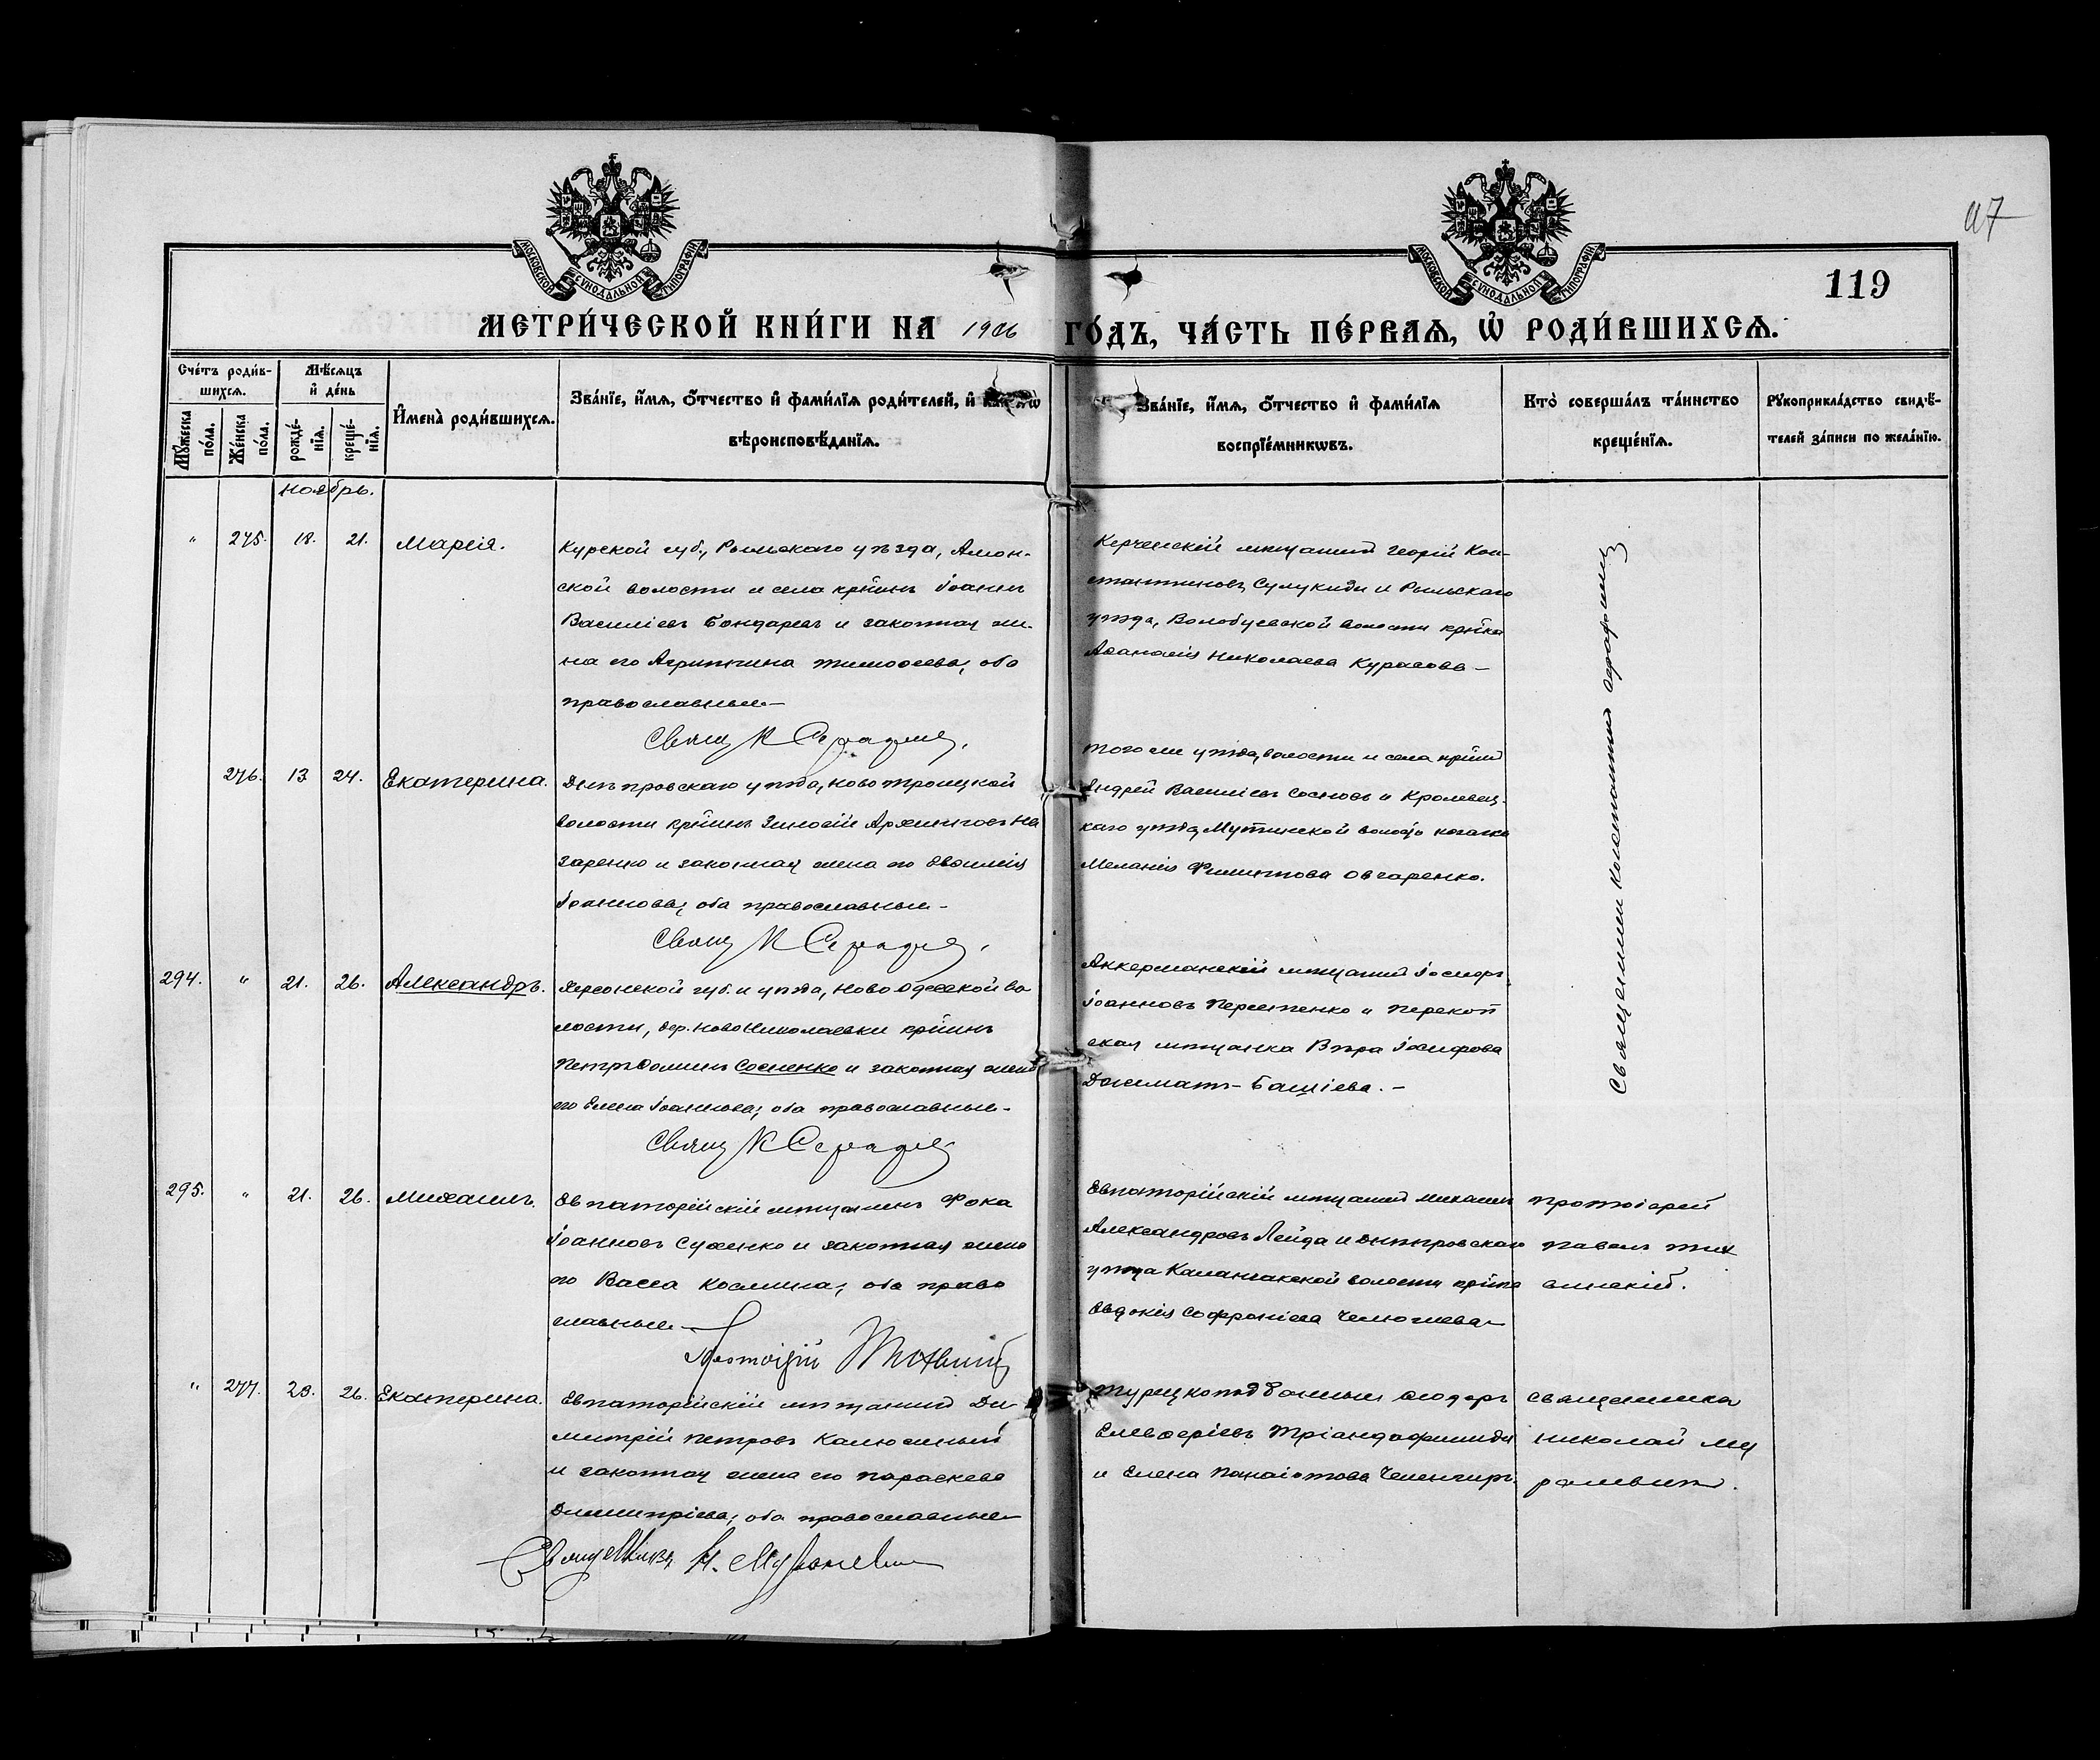 117
119
МОСКОВСКОЙ СѴНОДАЛЬНОЙ ТИПОГРАФІИ
МОСКОВСКОЙ СѴНОДАЛЬНОЙ ТИПОГРАФІИ
МЕТРИ́ЧЕСКОЙ КНИ́ГИ НА 1906 ГО́ДЪ, ЧА́СТЬ ПЕ́РВАѦ, Ѡ РОДИ́ВШИХСѦ.
Сче́тъ роди́в-
шихсѧ.
Мꙋ́жеска по́ла.
Же́нска по́ла.
Мѣ́сѧцъ
и҆ де́нь
рожде́-
нїѧ.
креще́-
нїѧ.
И҆мена̀ роди́вшихсѧ.
Зва́нїе, и҆́мѧ, ѻ҆́тчество и҆ фами́лїѧ роди́телей, и҆
вѣроисповѣ́данїѧ.
Зва́нїе, и҆́мѧ, ѻ҆́тчество и҆ фами́лїѧ
воспрїе́мникѡвъ.
Кто̀ соверша́лъ та́инство
креще́нїѧ.
Рꙋкоприкла́дство свидѣ́-
телей за́писи по жела́нїю.
Ноябрь.
" 275. 18. 21. Марія.
Курской губ., Рыльскаго уѣзда, Амон-
ской волости и села кр̃нинъ Іоаннъ
Василіевъ Бондаревъ и законная же-
на его Агриппина Тимоѳеева, оба
православные.—
Свящ К Серафим
Керченскій мѣщанинъ Георгій Кон-
стантиновъ Сулукиди и Рыльскаго
уѣзда, Волобуевской волости кр̃нка
Аѳанасія Николаева Курасова—
Священникъ Константинъ Серафимовъ
276. 13 24. Екатерина.
Днѣпровскаго уѣзда, Ново Троицкой
волости кр̃нинъ Зиновій Архиповъ На
заренко и законная жена его Евфимія
Іоаннова, оба православные—
Свящ К Серафим
Того же уѣзда, волости и села кр̃нинъ
Андрей Василіевъ Сосновъ и Кролевец-
каго уѣзда Мутинской волости казачка
Меланія Филиппова Овчаренко.
294. " 21. 26. Александръ.
Херсонской губ. и уѣзда, Ново Одесской во
лости, дер. Ново Николаевки кр̃нинъ
Петръ Ѳоминъ Сосненко и законная жена
его Елена Іоаннова, оба православные—
Свящ К Серафим
Аккерманскій мѣщанинъ Іосифъ
Іоанновъ Пересипенко и Перекоп
ская мѣщанка Вѣра Іосифова
Башіева.—
295. " 21. 26. Михаилъ.
Евпаторійскій мѣщанинъ Фока
Іоанновъ Сухенко и законная жена
его Васса Космина, оба право
славные—
Протоіерей Тихвинскій
Евпаторійскій мѣщанинъ Михаилъ
Александровъ Лейда и Днѣпровскаго
уѣзда Каланчакской волости кр̃нка
Евдокія Софроніева
Протоіерей
Павелъ Тих
винскій.
" 277. 23. 26. Екатерина.
Евпаторійскій мѣщанинъ Ди
митрій Петровъ Калюжный
и законная жена его Параскева
Димитріева, оба православные—
Священникъ Н.
Турецкоподданный Ѳеодоръ
Елевѳеріевъ Тріандафилиди
и Елена Панаіотова Челенгиръ.
Священникъ
Николай Му